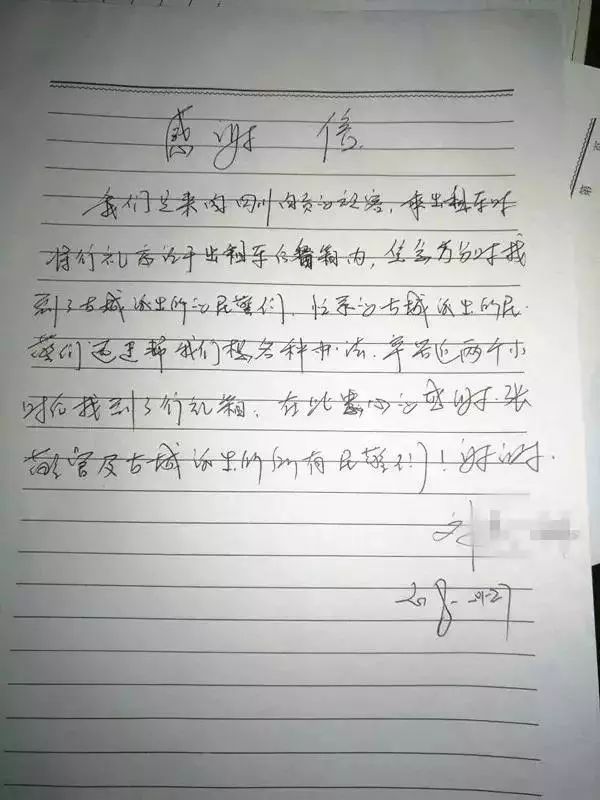 感谢 信
我们是来自四川自贡的旅客,乘出租车时
将行礼忘记于出租车后备箱内,焦急万分时找
到了古城派出所的民警们,的古城派出所民
警们迅速帮我们想各种办法.辛苦近两个小
时后找到了行礼箱,在此衷心的感谢张
警官及古城派出所所有民警们!谢谢.
刘
2018-01-27
第